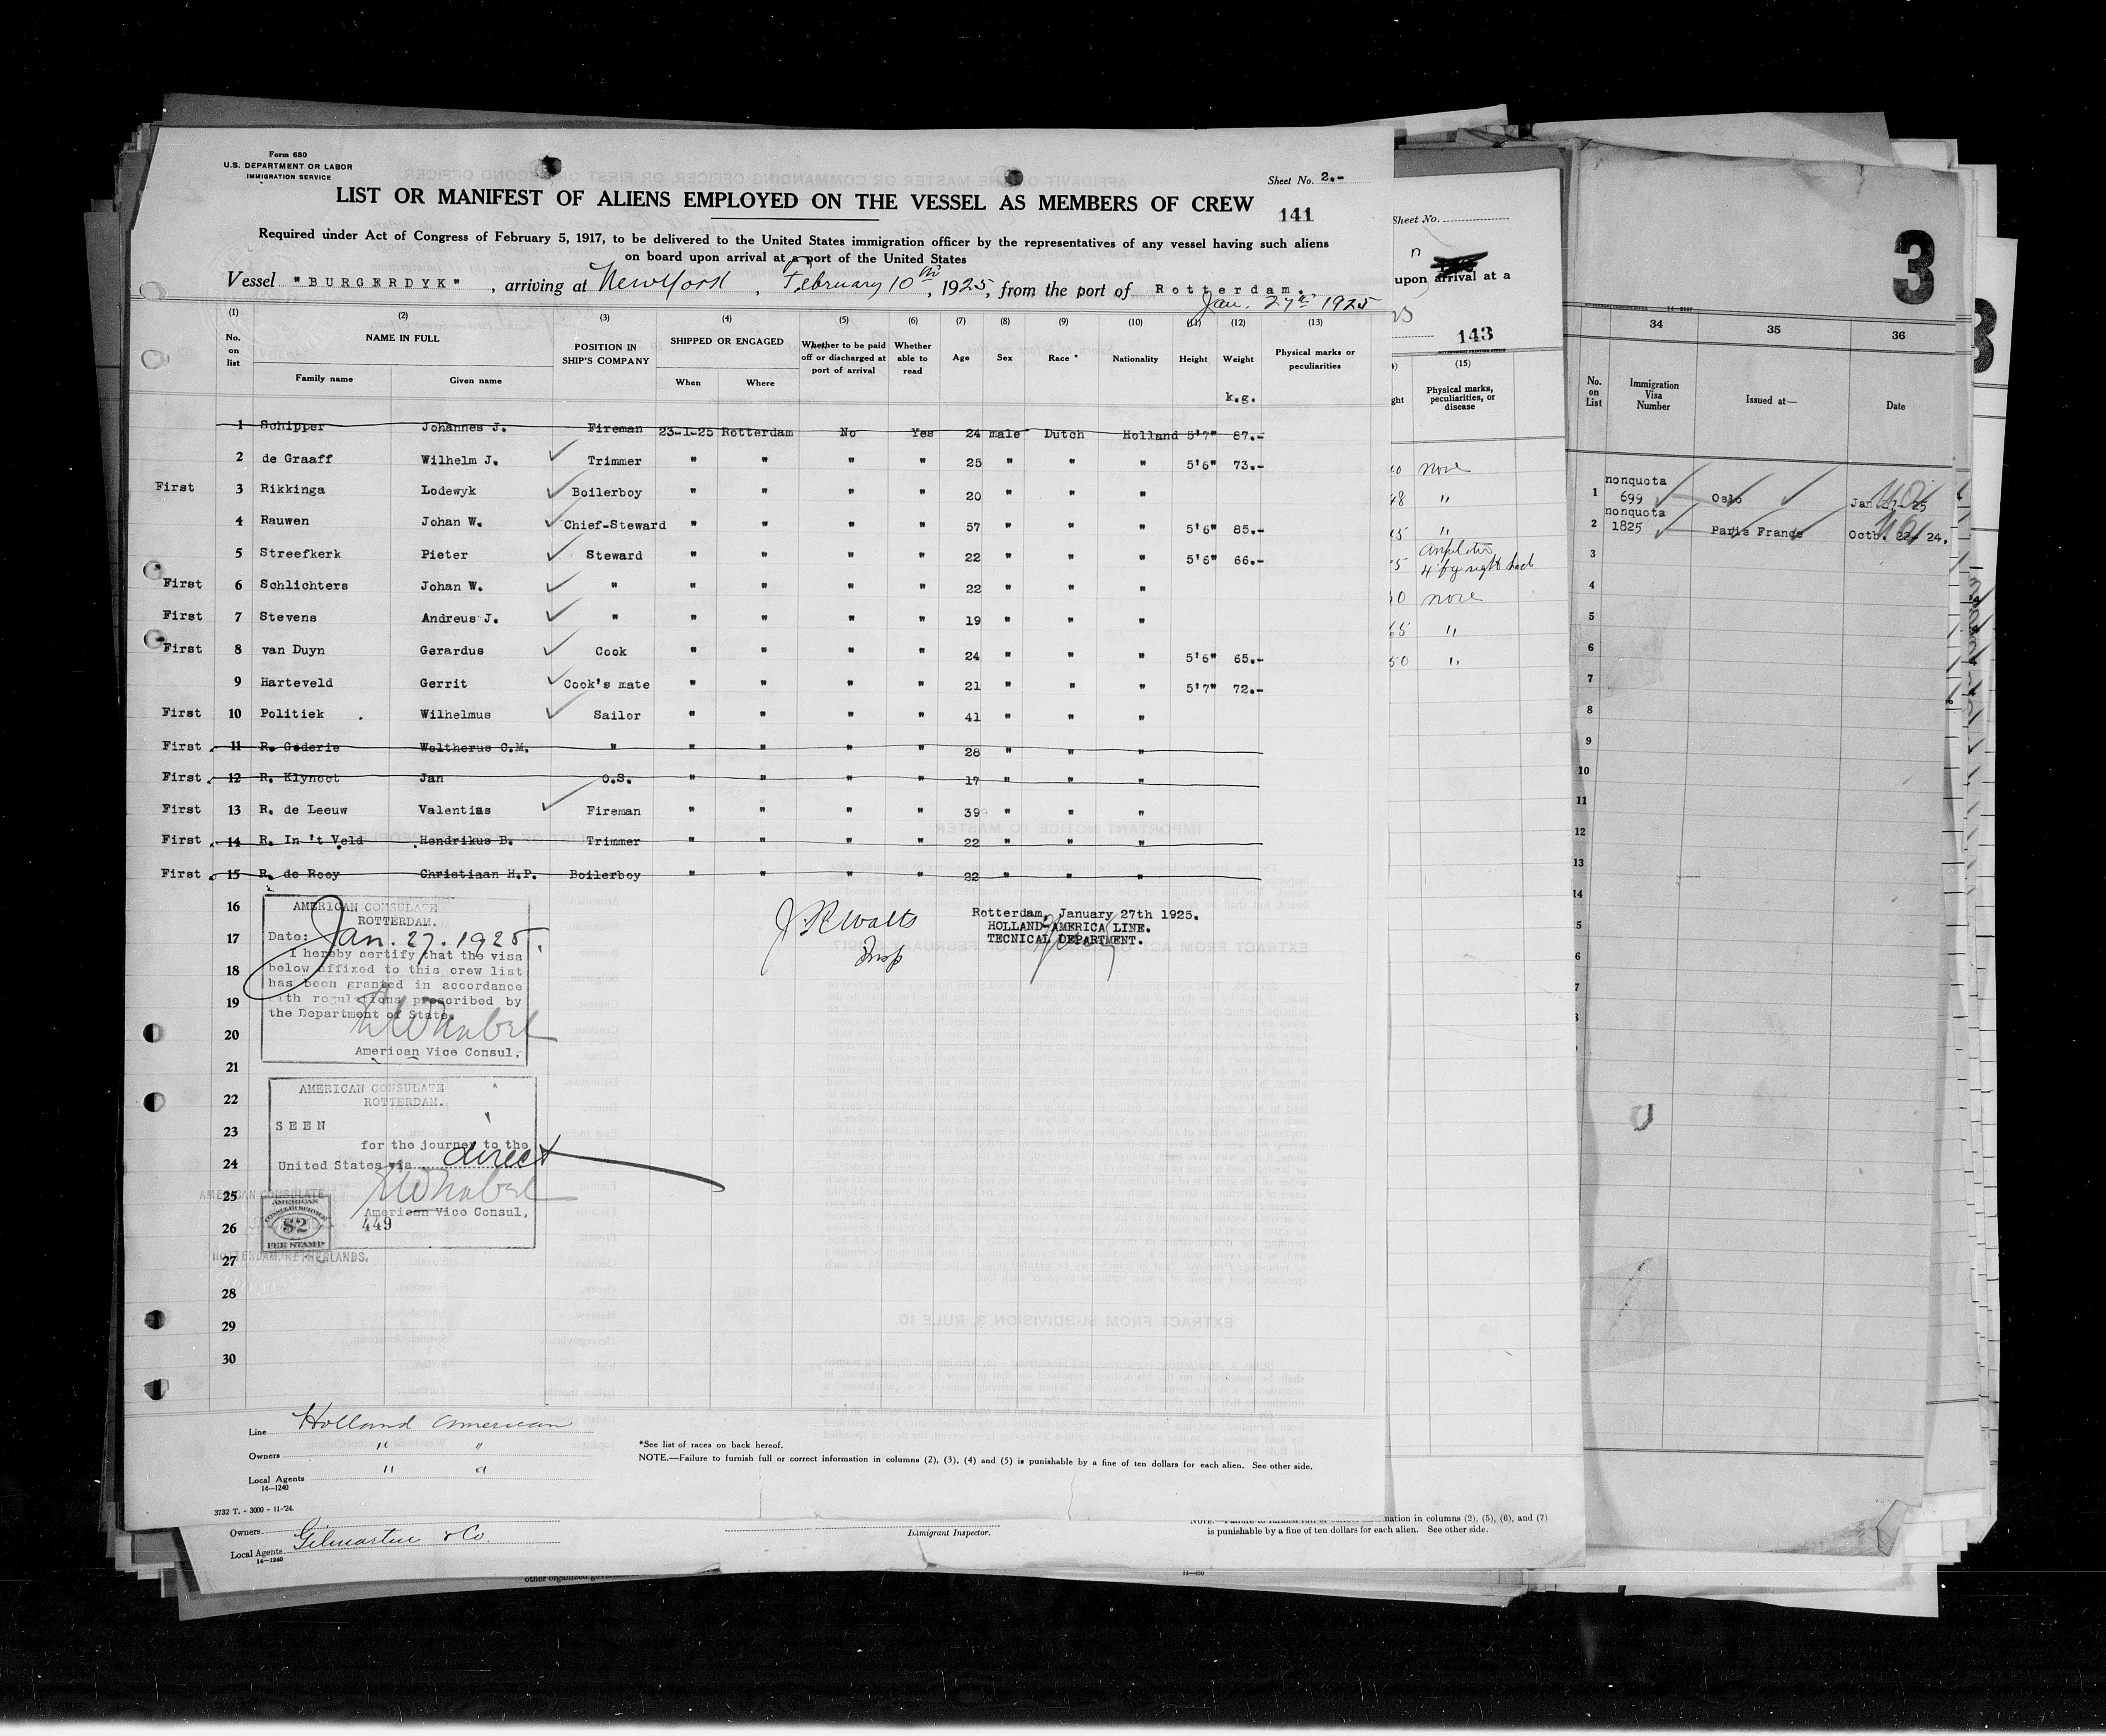 Form 680
U.S. DEPARTMENT OR LABOR
IMMIGRATION SERVICE
Sheet No. 2.-
LIST OR MANIFEST OF ALIENS EMPLOYED ON THE VESSEL AS MEMBERS OF CREW
141
Required under Act of Congress of February 5, 1917, to be delivered to the United States immigration officer by the representatives of any vessel having such aliens
on board upon arrival at a port of the United States
Vessel "BURGERDYK", arriving at New York, February 10th, 1925, from the port of Rotterdam.
Jan. 27th 1925
(1) (2) (3) (4) (5) (6) (7) (8) (9) (10) (11) (12) (13)
No. on list NAME IN FULL POSITION IN SHIP'S COMPANY SHIPPED OR ENGAGED Whether to be paid off or discharged at port of arrival Whether able to read Age Sex Race * Nationality Height Weight Physical marks or peculiarities
Family name Given name When Where
k.g.
1 Schipper Johannes J. Fireman 23-1-25 Rotterdam No Yes 24 male Dutch Holland 5'7" 67.-
2 de Graaff Wilhelm J. Trimmer " " " " 25 " " " 5'6" 73.-
First 3 Rikkinga Lodewyk Boilerboy " " " " 20 " " "
4 Rauwen Johan W. Chief-Steward " " " " 57 " " " 5'6" 85.-
5 Streefkerk Pieter Steward " " " " 22 " " " 5'6" 66.-
First 6 Schlichters Johan W. " " " " " 22 " " "
First 7 Stevens Andreus J. " " " " " 19 " " "
First 8 van Duyn Gerardus Cook " " " " 24 " " " 5'6" 65.-
9 Harteveld Gerrit Cook's mate " " " " 21 " " " 5'7" 72.-
First 10 Politiek Wilhelmus Sailor " " " " 41 " " "
First 11 R. Gederie Woltherus C.M. " " " " " 28 " " "
First 12 R. Klynoot Jan O.S. " " " " 17 " " "
First 13 R. de Leeuw Valentias Fireman " " " " 39 " " "
First 14 R. In 't Veld Hendrikus B. Trimmer " " " " 22 " " "
First 15 R. de Rooy Christiaan H.P. Boilerboy " " " " 22 " " "
16
17
18
19
20
21
22
23
24
25
26
27
28
29
30
AMERICAN CONSULATE
ROTTERDAM.
Date: Jan. 27. 1925.
I hereby certify that the visa
below affixed to this crew list
has been granted in accordance
with regulations prescribed by
the Department of State.
American Vice Consul,
AMERICAN CONSULATE
ROTTERDAM.
SEEN
for the journey to the
United States via direct
American Vice Consul,
449
AMERICAN CONSULATE
AMERICAN
CONSULAR SERVICE
$2
FEE STAMP
ROTTERDAM, NETHERLANDS.
J R Walts
Insp
Rotterdam, January 27th 1925.
HOLLAND-AMERICA LINE.
TECNICAL DEPARTMENT.
Line Holland American
Owners " "
Local Agents " "
14—1240
*See list of races on back hereof.
NOTE.—Failure to furnish full or correct information in columns (2), (3), (4) and (5) is punishable by a fine of ten dollars for each alien. See other side.
3732 T. - 3000 - 11-'24.
Owners
Local Agents Gilmartin & Co.
14—1240
Immigrant Inspector.
NOTE.—Failure to furnish full or correct information in columns (2), (5), (6), and (7)
is punishable by a fine of ten dollars for each alien. See other side.
Sheet No.
upon arrival at a
143
(15)
Physical marks, peculiarities, or disease
none
"
"
4 fg right hand
none
"
"
3
34 35 36
No. on List Immigration Visa Number Issued at— Date
1 nonquota 699 Oslo Jan 25
2 nonquota 1825 Paris France Octb. 22- 24.
3
4
5
6
7
8
9
10
11
12
13
14